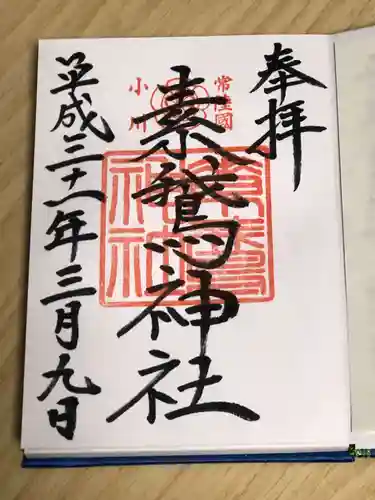 奉拝
常陸國
小川
素鵞神社
平成三十一年三月九日